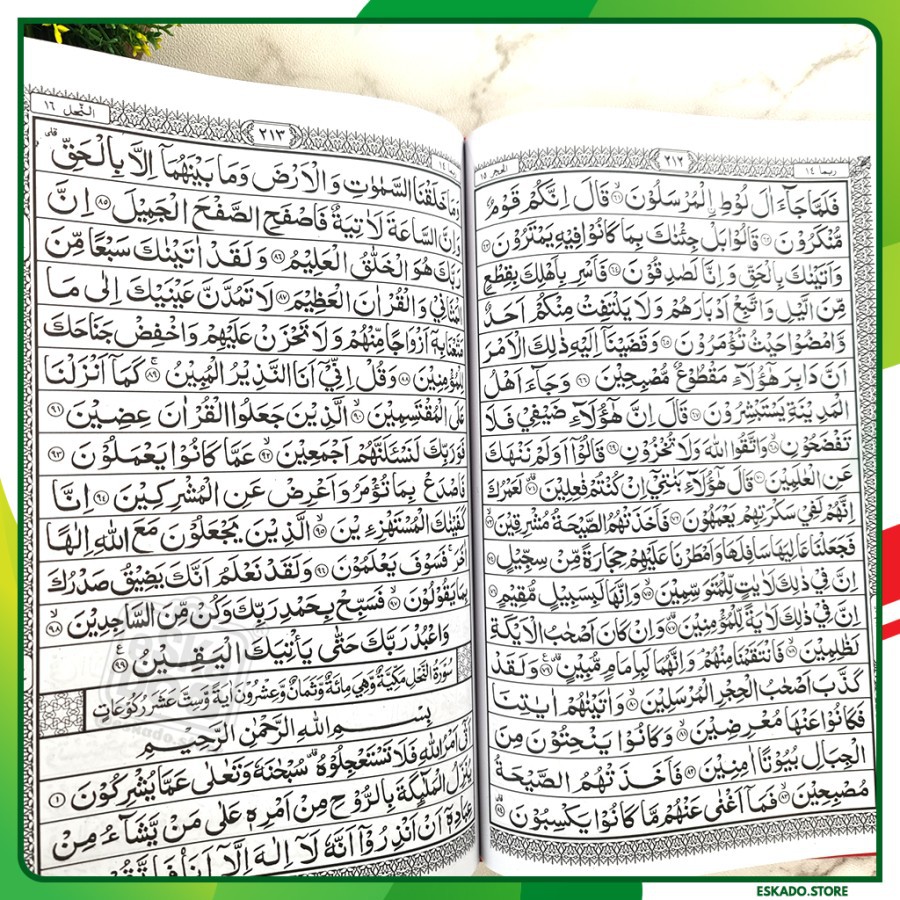 ربما ١٤
٢١٢
الحجر ١٥
فَلَمَّا جَآءَ اٰلَ لُوْطِ ِۨالْمُرْسَلُوْنَ ۙ٦١ قَالَ اِنَّكُمْ قَوْمٌ
مُّنْكَرُوْنَ ٦٢ قَالُوْا بَلْ جِئْنٰكَ بِمَا كَانُوْا فِيْهِ يَمْتَرُوْنَ ٦٣
وَاَتَيْنٰكَ بِالْحَقِّ وَاِنَّا لَصٰدِقُوْنَ ٦٤ فَاَسْرِ بِاَهْلِكَ بِقِطْعٍ
مِّنَ الَّيْلِ وَاتَّبِعْ اَدْبَارَهُمْ وَلَا يَلْتَفِتْ مِنْكُمْ اَحَدٌ
وَّامْضُوْا حَيْثُ تُؤْمَرُوْنَ ٦٥ وَقَضَيْنَآ اِلَيْهِ ذٰلِكَ الْاَمْرَ
اَنَّ دَابِرَ هٰٓؤُلَآءِ مَقْطُوْعٌ مُّصْبِحِيْنَ ٦٦ وَجَآءَ اَهْلُ
الْمَدِيْنَةِ يَسْتَبْشِرُوْنَ ٦٧ قَالَ اِنَّ هٰٓؤُلَآءِ ضَيْفِيْ فَلَا
تَفْضَحُوْنِ ۙ٦٨ وَاتَّقُوا اللّٰهَ وَلَا تُخْزُوْنِ ٦٩ قَالُوْٓا اَوَلَمْ نَنْهَكَ
عَنِ الْعٰلَمِيْنَ ٧٠ قَالَ هٰٓؤُلَآءِ بَنٰتِيْٓ اِنْ كُنْتُمْ فٰعِلِيْنَ ۗ٧١ لَعَمْرُكَ
اِنَّهُمْ لَفِيْ سَكْرَتِهِمْ يَعْمَهُوْنَ ٧٢ فَاَخَذَتْهُمُ الصَّيْحَةُ مُشْرِقِيْنَ ۙ٧٣
فَجَعَلْنَا عَالِيَهَا سَافِلَهَا وَاَمْطَرْنَا عَلَيْهِمْ حِجَارَةً مِّنْ سِجِّيْلٍ ۗ٧٤
اِنَّ فِيْ ذٰلِكَ لَاٰيٰتٍ لِّلْمُتَوَسِّمِيْنَ ٧٥ وَاِنَّهَا لَبِسَبِيْلٍ مُّقِيْمٍ ٧٦
اِنَّ فِيْ ذٰلِكَ لَاٰيَةً لِّلْمُؤْمِنِيْنَ ۗ٧٧ وَاِنْ كَانَ اَصْحٰبُ الْاَيْكَةِ
لَظٰلِمِيْنَ ۙ٧٨ فَانْتَقَمْنَا مِنْهُمْ وَاِنَّهُمَا لَبِاِمَامٍ مُّبِيْنٍ ۗ٧٩ وَلَقَدْ
كَذَّبَ اَصْحٰبُ الْحِجْرِ الْمُرْسَلِيْنَ ۙ٨٠ وَاٰتَيْنٰهُمْ اٰيٰتِنَا
فَكَانُوْا عَنْهَا مُعْرِضِيْنَ ۙ٨١ وَكَانُوْا يَنْحِتُوْنَ مِنَ
الْجِبَالِ بُيُوْتًا اٰمِنِيْنَ ٨٢ فَاَخَذَتْهُمُ الصَّيْحَةُ
مُصْبِحِيْنَ ۙ٨٣ فَمَآ اَغْنٰى عَنْهُمْ مَّا كَانُوْا يَكْسِبُوْنَ ۗ٨٤
٢١٣
النحل ١٦
وَمَا خَلَقْنَا السَّمٰوٰتِ وَالْاَرْضَ وَمَا بَيْنَهُمَآ اِلَّا بِالْحَقِّ
وَاِنَّ السَّاعَةَ لَاٰتِيَةٌ فَاصْفَحِ الصَّفْحَ الْجَمِيْلَ ٨٥ اِنَّ
رَبَّكَ هُوَ الْخَلّٰقُ الْعَلِيْمُ ٨٦ وَلَقَدْ اٰتَيْنٰكَ سَبْعًا مِّنَ
الْمَثَانِيْ وَالْقُرْاٰنَ الْعَظِيْمَ ٨٧ لَا تَمُدَّنَّ عَيْنَيْكَ اِلٰى مَا
مَتَّعْنَا بِهٖٓ اَزْوَاجًا مِّنْهُمْ وَلَا تَحْزَنْ عَلَيْهِمْ وَاخْفِضْ جَنَاحَكَ
لِلْمُؤْمِنِيْنَ ٨٨ وَقُلْ اِنِّيْٓ اَنَا النَّذِيْرُ الْمُبِيْنُ ۚ٨٩ كَمَآ اَنْزَلْنَا
عَلَى الْمُقْتَسِمِيْنَ ۙ٩٠ الَّذِيْنَ جَعَلُوا الْقُرْاٰنَ عِضِيْنَ ٩١
فَوَرَبِّكَ لَنَسْـَٔلَنَّهُمْ اَجْمَعِيْنَ ۙ٩٢ عَمَّا كَانُوْا يَعْمَلُوْنَ ٩٣
فَاصْدَعْ بِمَا تُؤْمَرُ وَاَعْرِضْ عَنِ الْمُشْرِكِيْنَ ٩٤ اِنَّا
كَفَيْنٰكَ الْمُسْتَهْزِءِيْنَ ۙ٩٥ الَّذِيْنَ يَجْعَلُوْنَ مَعَ اللّٰهِ اِلٰهًا
اٰخَرَ ۚ فَسَوْفَ يَعْلَمُوْنَ ٩٦ وَلَقَدْ نَعْلَمُ اَنَّكَ يَضِيْقُ صَدْرُكَ
بِمَا يَقُوْلُوْنَ ۙ٩٧ فَسَبِّحْ بِحَمْدِ رَبِّكَ وَكُنْ مِّنَ السّٰجِدِيْنَ ۙ٩٨
وَاعْبُدْ رَبَّكَ حَتّٰى يَأْتِيَكَ الْيَقِيْنُ ٩٩
سُوْرَةُ النَّحْلِ مَكِّيَّةٌ وَهِيَ مِائَةٌ وَثَمَانٌ وَعِشْرُوْنَ اٰيَةً وَسِتَّ عَشَرَ رُكُوْعَاتٍ
بِسْمِ اللّٰهِ الرَّحْمٰنِ الرَّحِيْمِ
اَتٰٓى اَمْرُ اللّٰهِ فَلَا تَسْتَعْجِلُوْهُ ۗ سُبْحٰنَهٗ وَتَعٰلٰى عَمَّا يُشْرِكُوْنَ ١
يُنَزِّلُ الْمَلٰٓئِكَةَ بِالرُّوْحِ مِنْ اَمْرِهٖ عَلٰى مَنْ يَّشَآءُ مِنْ
عِبَادِهٖٓ اَنْ اَنْذِرُوْٓا اَنَّهٗ لَآ اِلٰهَ اِلَّآ اَنَا۠ فَاتَّقُوْنِ
ESKADO.STORE